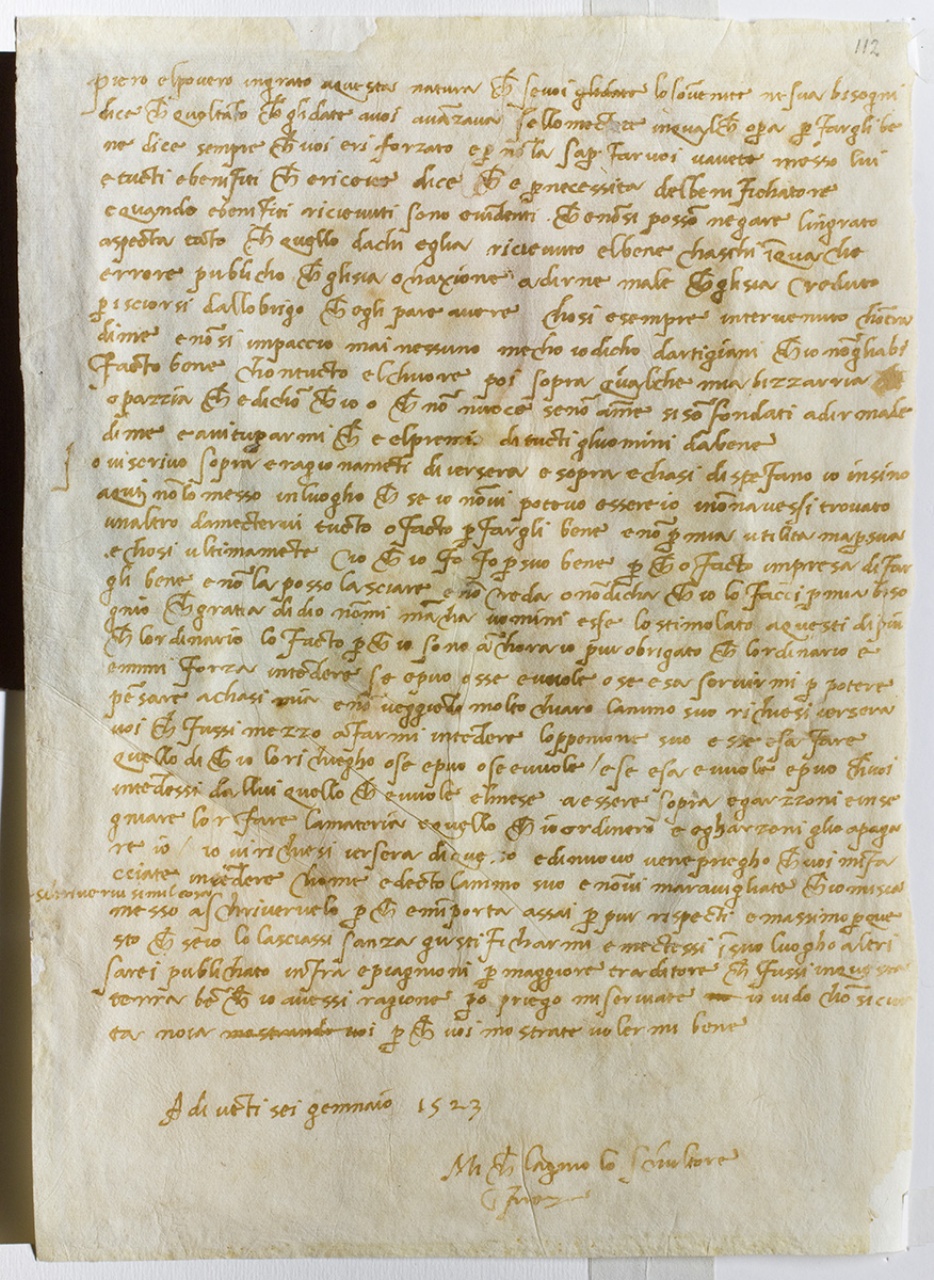 112
Piero elpovero ingrato aquesta natura che sevoi glidate losovenite nesua bisogni
dice che queltāto che glidate avoi avāzava sellomectete inqualche opera p fargli be
ne dice sempre che voi eri forzato e p nō la sap far voi vavete messo lui
e tucti ebenifiti che ericeve dice che e p necessita delbenifichatore
e quando ebenifiti ricievuti sono evidenti che enōsi possō negare lingrato
aspecta tāto che quello dachi eglia ricievuto elbene chaschi ī qualche
errore publicho che glisia ochaxione a dirne male che glisia creduto
p isciorsi dallobrigo che egli pare avere chosi e sempre intervenuto chōtra
dime e nōsi impaccio mai nessuno mecho io dicho dartigiani che io nōgliabi
facto bene chontucto elchuore poi sopra qualche mia bizzarria
o pazzia che edichō che io o che nō nuoce senō ame si sō fondati a dir male
dime e avituparmi che e elpremio di tucti gliuomini dabene
o vi scrivo sopra e ragionamēti di iersera e sopra e chasi di stefano io insino
aqui nōlo messo in luogho che se io nōvi potevo essere io iō nonavessi trovato
unaltro damectervi tucto o facto p fargli bene e nō p mia utilita ma p sua
e chosi ultimamēte cio che io fo fo p suo bene p che o facto impresa di far
gli bene e nō la posso lasciare e nō creda o nōdicha che io lo facci p mia biso
gnio che gratia didio nōmi mācha uomini e se lo stimolato a questi di piu
che lordinario lo facto p che io sono āchora io piu obrigato che lordinario e
emmi forza intēdere se epuo o se evuole o se e sa servirmi p potere
pēsare a chasi mia e nō veggiēdo molto chiaro lanimo suo richiesi iersera
voi che fussi mezzo a farmi intēdere loppenione suo e se e sa fare
quello di che io lo richiegho o se epuo o se evuole / e se e sa e vuole e puo che voi
intēdessi dallui quello che e vuole elmese a essere sopra egarzzoni e inse
gniare lor fare lamateria e quello che io ordinero e egharzoni glio apaga
re io / io vi richiesi iersera di questo e dinuovo ve ne priegho che voi mi fa
cciate intēdere chome e decto lanimo suo e nōvi maravigliate che io mi sia
scriverui simil cosa
messo a schrivervelo p che e mimporta assai p piu rispecti e massimo p que
sto che se io lo lasciassi sanza giustificharmi e mectessi ī suo luogho altri
sarei publichato infra epiagnioni p maggiore tradditore che fussi inquesta
terra bē che io avessi ragione po priego mi serviate io vi do chō sicur
ta noia mostrando voi p che voi mostrate volermi bene
A di vēti sei gennaio 1523
Michelagniolo schultore